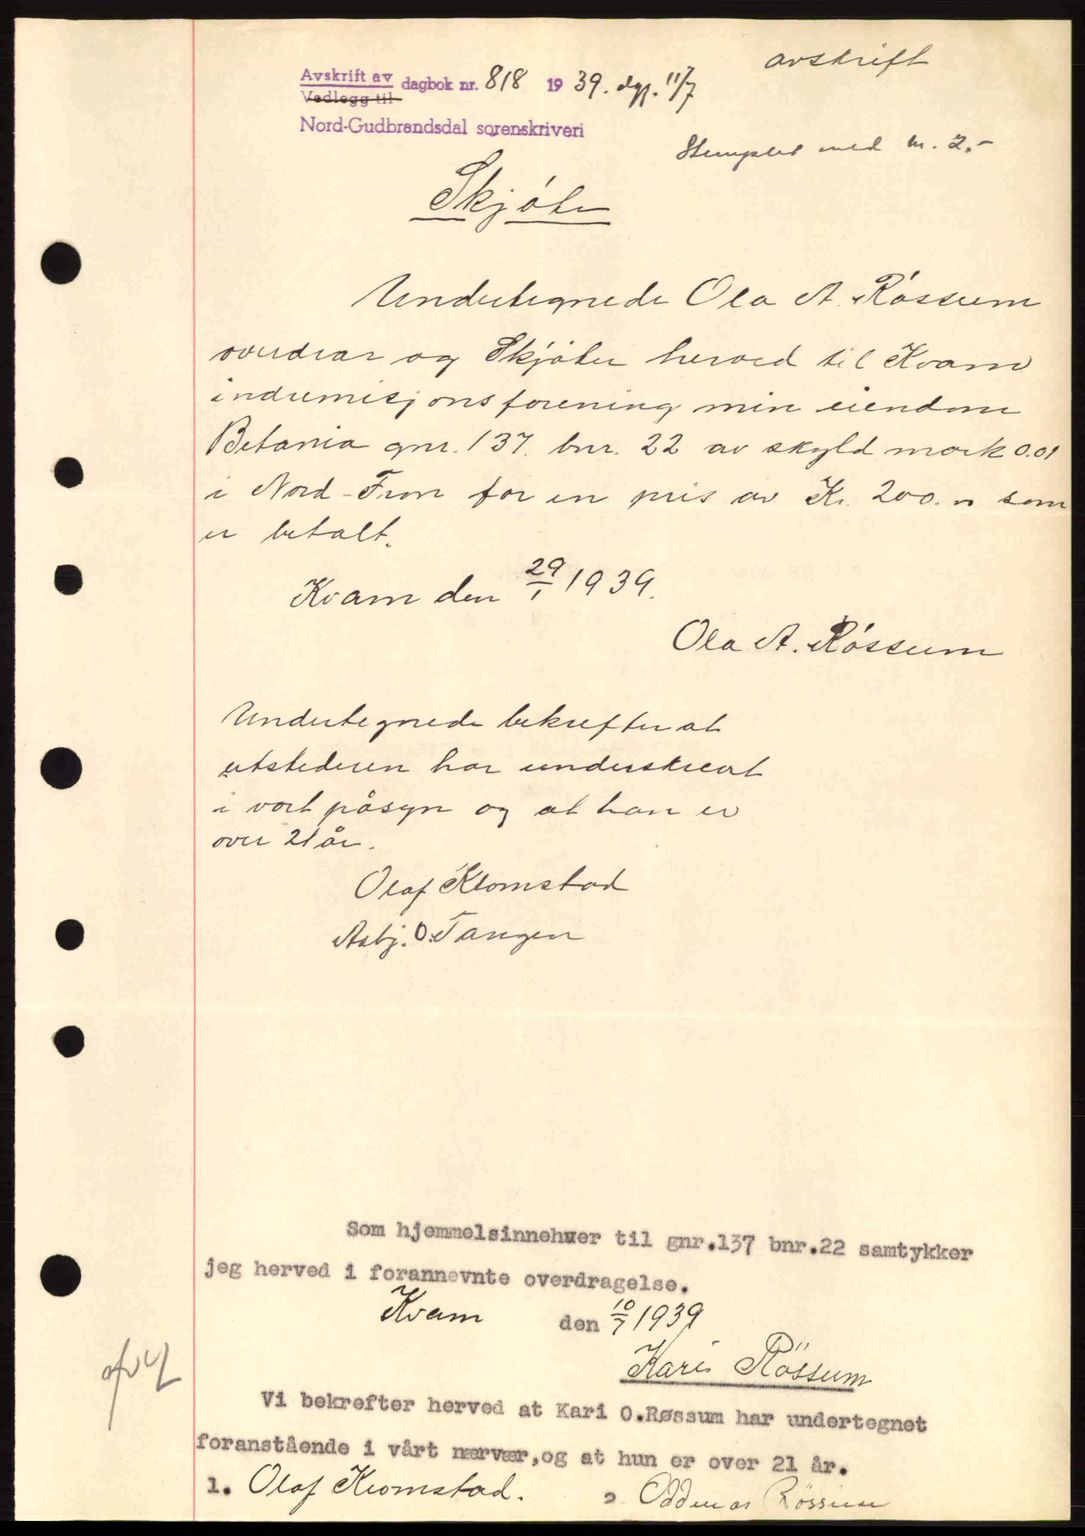 avskrift
Avskrift av dagbok nr. 818 1939. dgf. 11/7
Vedlegg til
Nord-Gudbrandsdal sorenskriveri
Stemplet med kr. 2.-
Skjøte
Undertegnede Ola A. Røssum
overdrar og Skjøter herved til Kvam
indremisjonsforening min eiendom
Betania gnr. 137. bnr. 22 av skyld mark 0.01
i Nord-Fron for en pris av Kr. 200.- som
er betalt.
Kvam den 29/1 1939.
Ola A. Røssum
Undertegnede bekrefter at
utstederen har underskrevt
i vort påsyn og at han er
over 21 år.
Olaf Kromstad
Asbj. O. Tangen
Som hjemmelsinnehver til gnr.137 bnr.22 samtykker
jeg herved i forannevnte overdragelse.
Kvam den 10/7 1939
Kari Røssum
Vi bekrefter herved at Kari O.Røssum har undertegnet
foranstående i vårt nærvær,og at hun er over 21 år.
1. Olaf Kromstad. 2 Oddmar Røssum